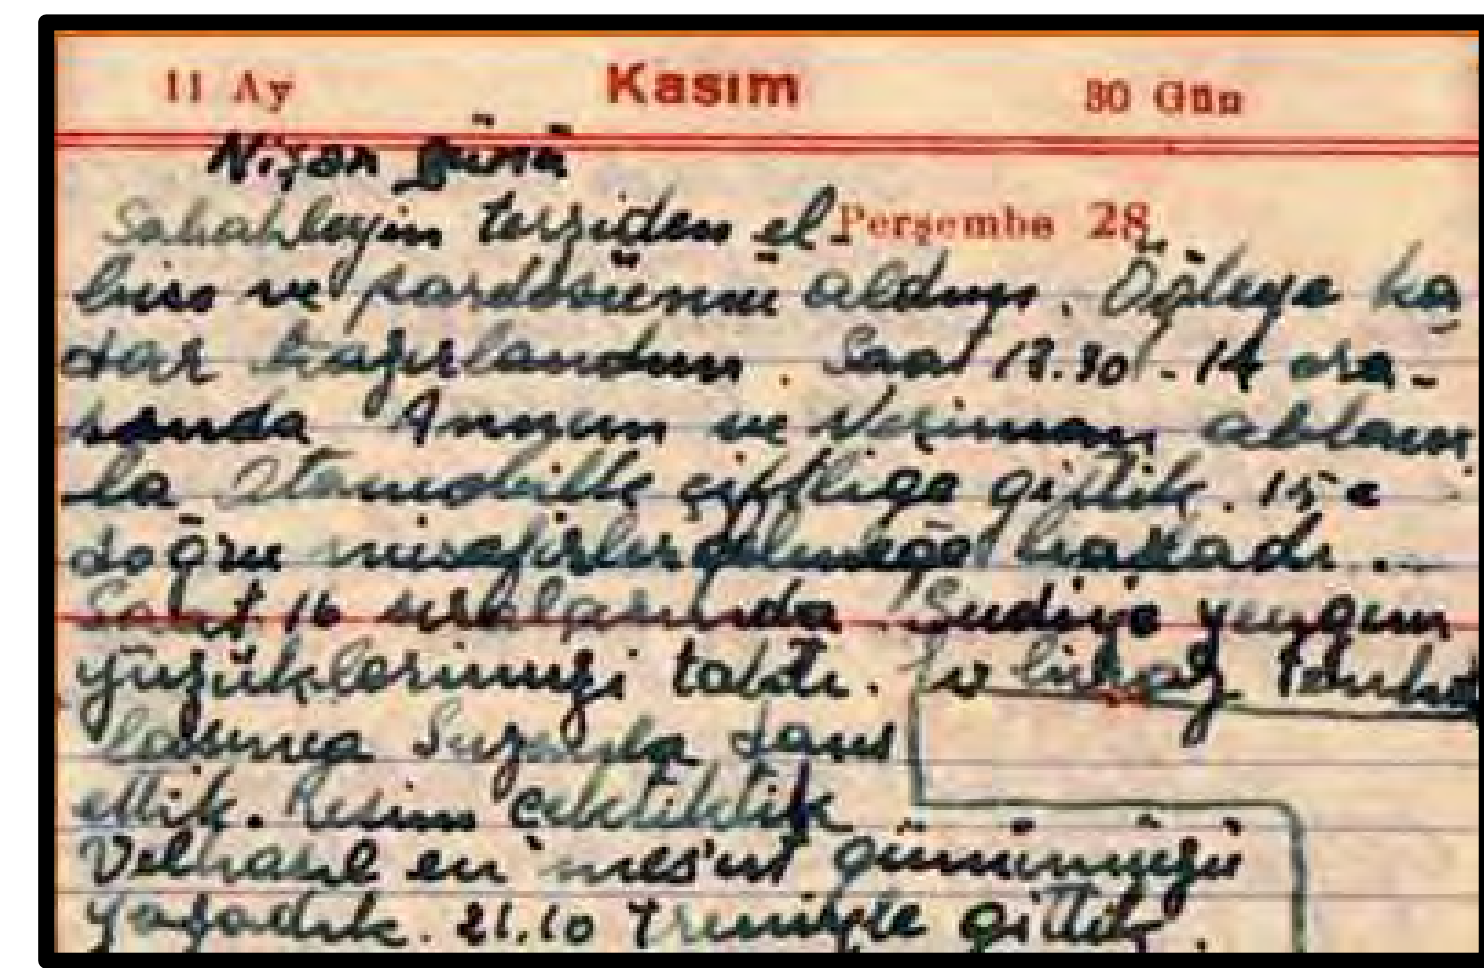 11 Ay Kasım 30 Gün
Nişan günü
Sabahleyin terziden el-
Perşembe 28
bise ve pardösümü aldım. Öğleye ka
dar hazırlandım. Saat 13.30 - 14 ara-
sında Annem ve Neriman ablam
la Otomobille çiftliğe gittik. 15 e
doğru misafirler gelmeğe başladı...
Saat 16 sıralarında Sudiye yengem
yüzüklerimizi taktı.
Suzanla dans
ettik. Resim çektik
Velhasıl en mes'ut günümüzü
yaşadık. 21.10 Treniyle gittik.